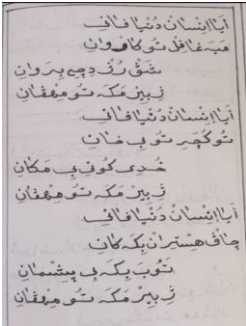 أيا إنسان دنيا فاني
مبه غافل تو كاروان
شڤ رژ دچه بروان
ژبير مكه تو مرڤان
أيا إنسان دنيا فاني
تو كچر تو بي خان
خدي كوني بي مكان
ژبير مكه تو مرڤان
أيا إنسان دنيا فاني
چاڤ هستران بكه كان
توب بكه بي پيشمان
ژبير مكه تو مرڤان